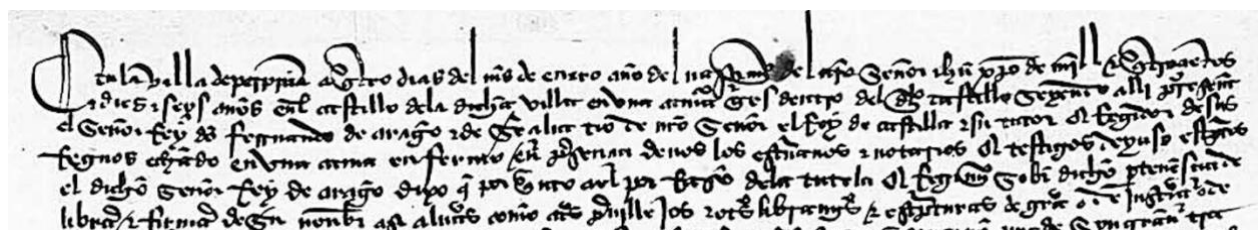 En la villa de perpiñan a q̃tro dias del mes de enero año del nasçimº del nr̃o Señor ihũ xp̃o de mill e q̃troçientos
e dies e seys años en l castillo dela dicha villa en una camara q̃ es dentro del dho castillo Seyendo alli presente
el Señor Rey dõ ferrnando de aragõ e de Seçilia tio de nr̃o Señor el Rey de castilla e su tutor e Regidor de sus
Regnos echado en una cama enfermo en presençia de nos los escr̃vanos e notarios e testigos deyuso escr̃ptos
el dicho Señor Rey de aragõ dixo q̃ por quanto a el por Razõ dela tutela e Regimº Sobre dicho pertenesçia de
librar e firmar de Su nonbre asi alvalas como cartas previllejos e otros libramientos e escr̃pturas de grã o de justiçia o de